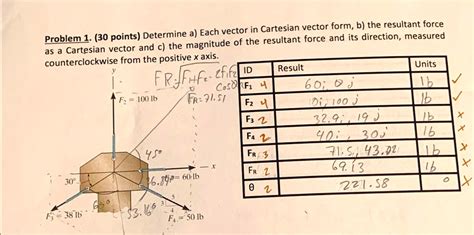 Problem 1. (30 points) Determine a) Each vector in Cartesian vector form, b) the resultant force
as a Cartesian vector and c) the magnitude of the resultant force and its direction, measured
counterclockwise from the positive x axis.
y
F₂ = 100 lb
FR=71.51
45°
x
30°
= 60 lb
60°
53.16°
F₃ = 38 lb
F₄ = 50 lb
ID Result Units
F1 4 60i, 0j lb
F2 4 0i, 100j lb
F3 2 32.9i, 19j lb
F4 2 40i, 30j lb
FR 3 71.5i, 43.02 lb
FR 2 69.13 lb
θ 2 221.58 °